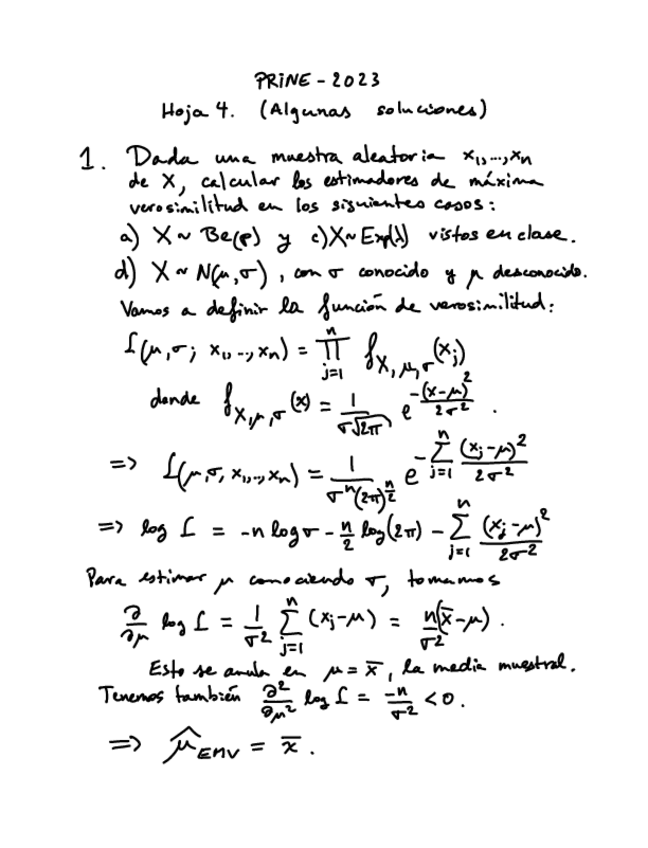 PRINE - 2023
Hoja 4. (Algunas soluciones)
1. Dada una muestra aleatoria x₁,...,xₙ
de X, calcular los estimadores de máxima
verosimilitud en los siguientes casos:
a) X ~ Be(p) y c) X ~ Exp(λ) vistos en clase.
d) X ~ N(μ,σ), con σ conocido y μ desconocido.
Vamos a definir la función de verosimilitud:
L(μ,σ; x₁,...,xₙ) = ∏_{j=1}^{n} f_{X,μ,σ}(x_j)
donde f_{X,μ,σ}(x) = 1/(σ√(2π)) e^{-(x-μ)²/(2σ²)}.
=> L(μ,σ,x₁,...,xₙ) = 1/(σⁿ(2π)^{n/2}) e^{-∑_{j=1}^{n} (x_j-μ)²/(2σ²)}
=> log L = -n log σ - n/2 log(2π) - ∑_{j=1}^{n} (x_j-μ)²/(2σ²)
Para estimar μ conociendo σ, tomamos
∂/∂μ log L = 1/σ² ∑_{j=1}^{n} (x_j-μ) = n(x̄-μ)/σ².
Esto se anula en μ = x̄, la media muestral.
Tenemos también ∂²/∂μ² log L = -n/σ² < 0.
=> μ̂_{EMV} = x̄.